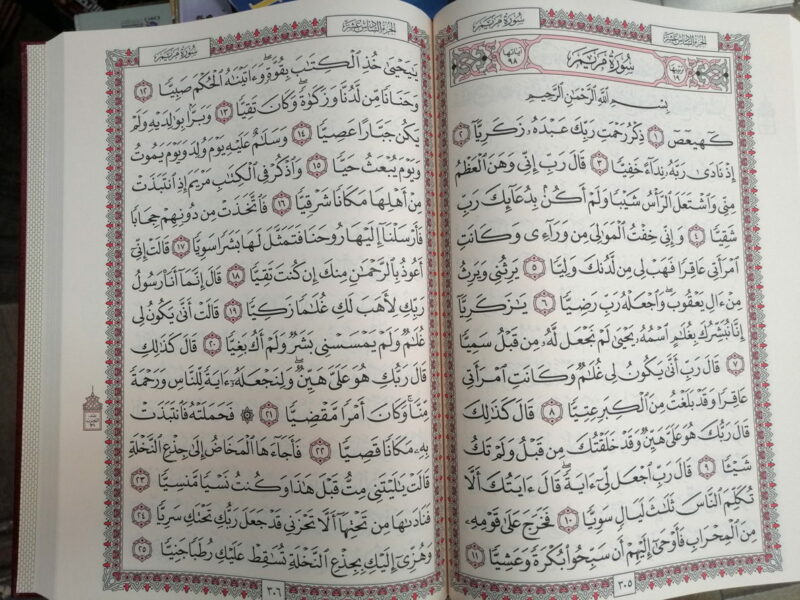 سُورَةُ مَرْيَمَ
الجُزءُ السَّادِسَ عَشَرَ
سُورَةُ مَرْيَمَ
آياتها ٩٨
ترتيبها ١٩
بِسْمِ ٱللَّهِ ٱلرَّحْمَٰنِ ٱلرَّحِيمِ
كٓهيعٓصٓ ١ ذِكْرُ رَحْمَتِ رَبِّكَ عَبْدَهُۥ زَكَرِيَّآ ٢
إِذْ نَادَىٰ رَبَّهُۥ نِدَآءً خَفِيًّا ٣ قَالَ رَبِّ إِنِّي وَهَنَ ٱلْعَظْمُ
مِنِّي وَٱشْتَعَلَ ٱلرَّأْسُ شَيْبًا وَلَمْ أَكُنۢ بِدُعَآئِكَ رَبِّ
شَقِيًّا ٤ وَإِنِّي خِفْتُ ٱلْمَوَٰلِيَ مِن وَرَآءِي وَكَانَتِ
ٱمْرَأَتِي عَاقِرًا فَهَبْ لِي مِن لَّدُنكَ وَلِيًّا ٥ يَرِثُنِي وَيَرِثُ
مِنْ ءَالِ يَعْقُوبَ ۖ وَٱجْعَلْهُ رَبِّ رَضِيًّا ٦ يَٰزَكَرِيَّآ
إِنَّا نُبَشِّرُكَ بِغُلَٰمٍ ٱسْمُهُۥ يَحْيَىٰ لَمْ نَجْعَل لَّهُۥ مِن قَبْلُ سَمِيًّا
٧ قَالَ رَبِّ أَنَّىٰ يَكُونُ لِي غُلَٰمٌ وَكَانَتِ ٱمْرَأَتِي
عَاقِرًا وَقَدْ بَلَغْتُ مِنَ ٱلْكِبَرِ عِتِيًّا ٨ قَالَ كَذَٰلِكَ
قَالَ رَبُّكَ هُوَ عَلَيَّ هَيِّنٌ وَقَدْ خَلَقْتُكَ مِن قَبْلُ وَلَمْ تَكُ
شَيْـًٔا ٩ قَالَ رَبِّ ٱجْعَل لِّيٓ ءَايَةً ۚ قَالَ ءَايَتُكَ أَلَّا
تُكَلِّمَ ٱلنَّاسَ ثَلَٰثَ لَيَالٍ سَوِيًّا ١٠ فَخَرَجَ عَلَىٰ قَوْمِهِۦ
مِنَ ٱلْمِحْرَابِ فَأَوْحَىٰٓ إِلَيْهِمْ أَن سَبِّحُوا۟ بُكْرَةً وَعَشِيًّا ١١
٣٠٥
الجُزءُ السَّادِسَ عَشَرَ
سُورَةُ مَرْيَمَ
يَٰيَحْيَىٰ خُذِ ٱلْكِتَٰبَ بِقُوَّةٍ ۖ وَءَاتَيْنَٰهُ ٱلْحُكْمَ صَبِيًّا ١٢
وَحَنَانًا مِّن لَّدُنَّا وَزَكَوٰةً ۖ وَكَانَ تَقِيًّا ١٣ وَبَرًّۢا بِوَٰلِدَيْهِ وَلَمْ
يَكُن جَبَّارًا عَصِيًّا ١٤ وَسَلَٰمٌ عَلَيْهِ يَوْمَ وُلِدَ وَيَوْمَ يَمُوتُ
وَيَوْمَ يُبْعَثُ حَيًّا ١٥ وَٱذْكُرْ فِي ٱلْكِتَٰبِ مَرْيَمَ إِذِ ٱنتَبَذَتْ
مِنْ أَهْلِهَا مَكَانًا شَرْقِيًّا ١٦ فَٱتَّخَذَتْ مِن دُونِهِمْ حِجَابًا
فَأَرْسَلْنَآ إِلَيْهَا رُوحَنَا فَتَمَثَّلَ لَهَا بَشَرًا سَوِيًّا ١٧ قَالَتْ إِنِّيٓ
أَعُوذُ بِٱلرَّحْمَٰنِ مِنكَ إِن كُنتَ تَقِيًّا ١٨ قَالَ إِنَّمَآ أَنَا۠ رَسُولُ
رَبِّكِ لِأَهَبَ لَكِ غُلَٰمًا زَكِيًّا ١٩ قَالَتْ أَنَّىٰ يَكُونُ لِي
غُلَٰمٌ وَلَمْ يَمْسَسْنِي بَشَرٌ وَلَمْ أَكُ بَغِيًّا ٢٠ قَالَ كَذَٰلِكِ
قَالَ رَبُّكِ هُوَ عَلَيَّ هَيِّنٌ ۖ وَلِنَجْعَلَهُۥٓ ءَايَةً لِّلنَّاسِ وَرَحْمَةً
مِّنَّا ۚ وَكَانَ أَمْرًا مَّقْضِيًّا ٢١ ۞ فَحَمَلَتْهُ فَٱنتَبَذَتْ
بِهِۦ مَكَانًا قَصِيًّا ٢٢ فَأَجَآءَهَا ٱلْمَخَاضُ إِلَىٰ جِذْعِ ٱلنَّخْلَةِ
قَالَتْ يَٰلَيْتَنِي مِتُّ قَبْلَ هَٰذَا وَكُنتُ نَسْيًا مَّنسِيًّا ٢٣
فَنَادَىٰهَا مِن تَحْتِهَآ أَلَّا تَحْزَنِي قَدْ جَعَلَ رَبُّكِ تَحْتَكِ سَرِيًّا ٢٤
وَهُزِّيٓ إِلَيْكِ بِجِذْعِ ٱلنَّخْلَةِ تُسَٰقِطْ عَلَيْكِ رُطَبًا جَنِيًّا ٢٥
٣٠٦